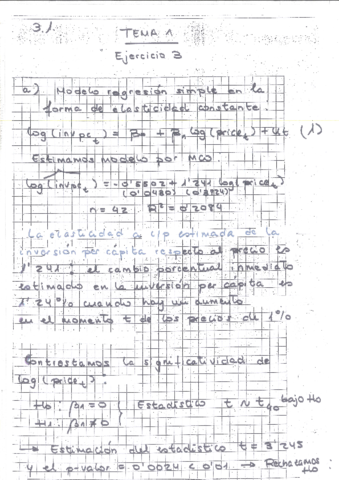 3.1
TEMA 1
Ejercicio 3
a) Modelo regresión simple en la
forma de elasticidad constante.
log(invpc_t) = β₀ + β₁ log(price_t) + u_t (1)
Estimamos modelo por MCO.
log(invpc_t) = -0'5502 + 1'241 log(price_t)
(0'0430) (0'3824)
n = 42 R² = 0'2084
La elasticidad a c/p estimada de la
inversión per cápita respecto al precio es
1'241: el cambio porcentual inmediato
estimado en la inversión per cápita es
1'24% cuando hay un aumento
en el momento t de los precios del 1%
Contrastamos la significatividad de
log(price_t).
H₀: β₁ = 0 } Estadístico t ~ t₄₀ bajo H₀
H₁: β₁ ≠ 0
→ Estimación del estadístico t = 3'245
y el p-valor = 0'0024 < 0'01 → Rechazamos
H₀